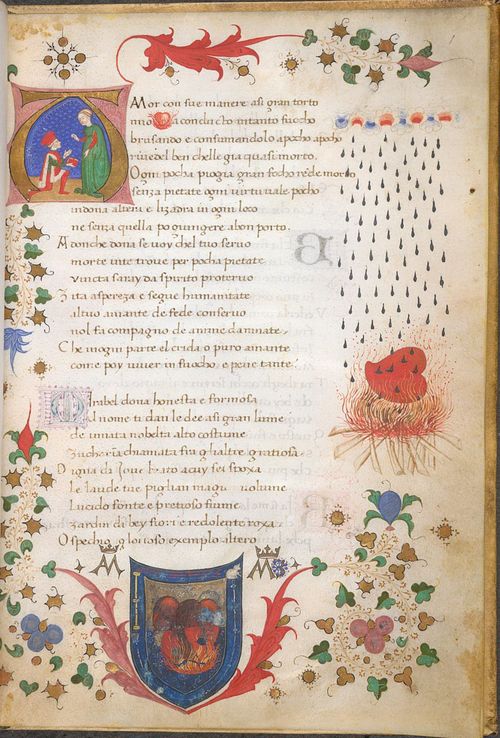 Amor con sue manere a si gran torto
mio ha conducto intanto fuocho
brusando e consumandolo apocho apocho
rivedel ben chelle gia quasi morto.
Ogni pocha piogia gran focho rede morto
senza pietate ogni virtu vale pocho
in dona altera e lizadra in ogni loco
ne senza quella po giungere a bon porto.
Adonche dona se voy chel tuo servo
morte non trove per pocha pietate
vincta saray da spirito protervo
Zita aspreza e segue humanitate
al tuo amante de fede conservo
nol fa compagno de anime damnate.
Che in ogni parte el crida o puro amante
come poy viver in fuocho e pene tante.
Mirabel dona honesta e formosa
al nome ti dan le dee a si gran lume
de innata nobelta alto costume
Zuchera chiamata fra ghaltre gratiosa.
Digna da Jove
Le laude tue piglian magn volume
Lucido fonte e pretioso fiume
Zardin di bey fiori e redolente roxa.
O spechio glorioso exemplo altero
M M